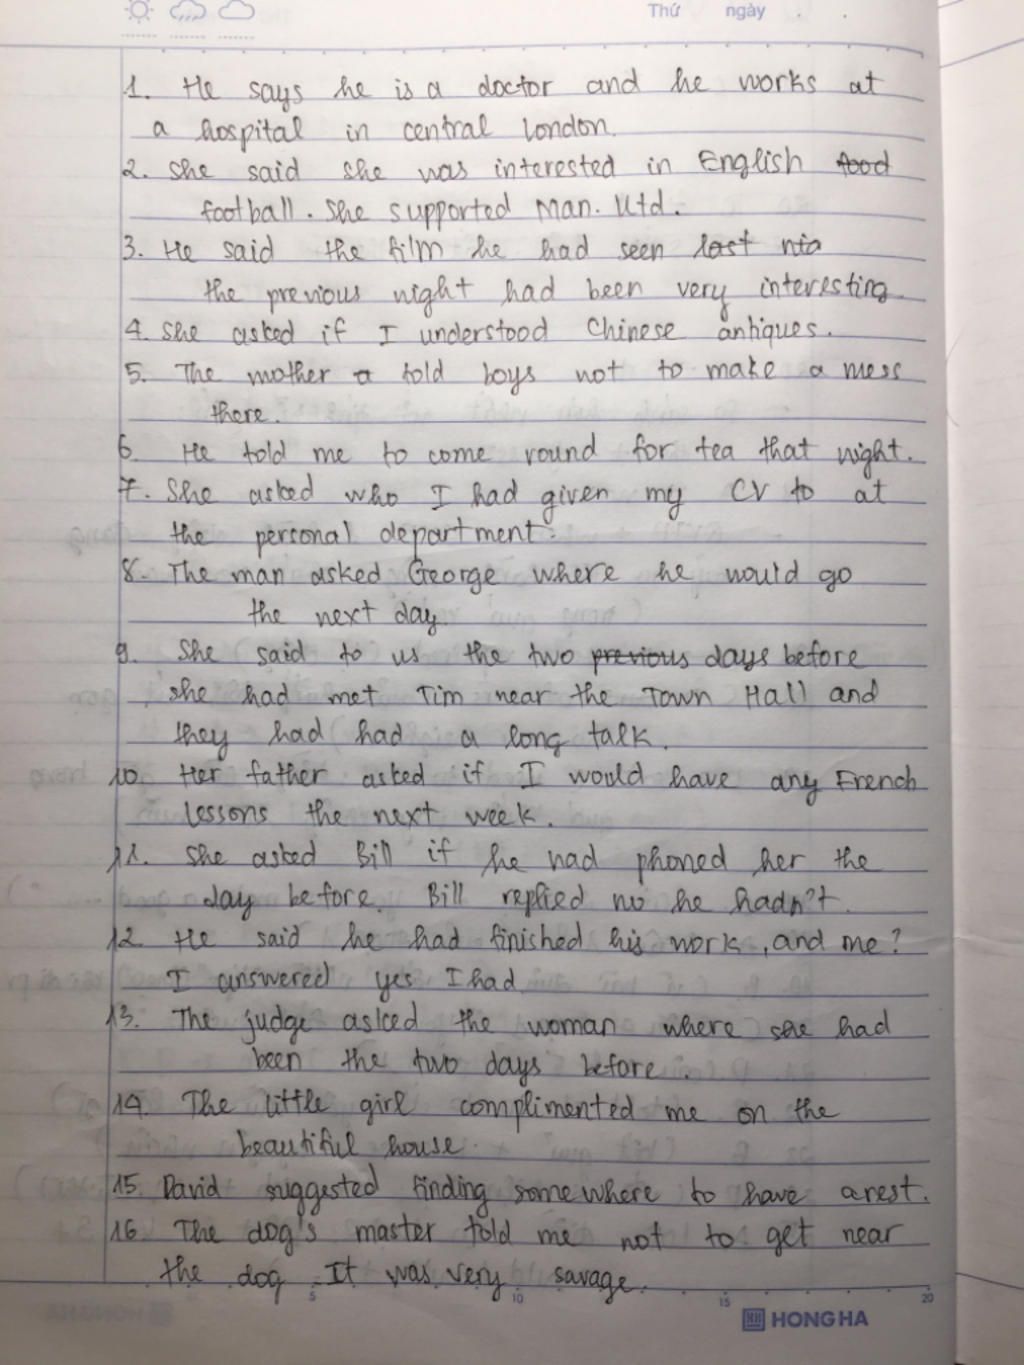 Thứ ngày
1. He says he is a doctor and he works at
a hospital in central London.
2. She said she was interested in English food
football. She supported Man. Utd.
3. He said the film he had seen last nia
the previous night had been very interesting.
4. She asked if I understood Chinese antiques.
5. The mother a told boys not to make a mess
there.
6. He told me to come round for tea that night.
7. She asked who I had given my CV to at
the personal department.
8. The man asked George where he would go
the next day
9. She said to us the two previous days before
she had met Tim near the Town Hall and
they had had a long talk.
10. Her father asked if I would have any French
lessons the next week.
11. She asked Bill if he had phoned her the
day before. Bill replied no he hadn't.
12. He said he had finished his work, and me?
I answered yes I had.
13. The judge asked the woman where she had
been the two days before.
14. The little girl complimented me on the
beautiful house.
15. David suggested finding somewhere to have arest.
16. The dog's master told me not to get near
the dog. It was very savage.
5 10 15 20
HONG HA